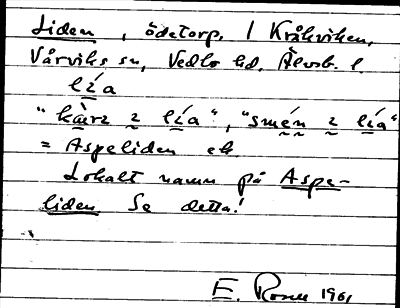 Liden, ödetorp. / Kråkviken,
Vårviks sn, Vedbo hd. Älvsb. l.
lía
"kärz i lía", "smén i lía"
= Aspeliden ek.
Lokalt namn på Aspe-
liden Se detta!
E. Rosell 1961